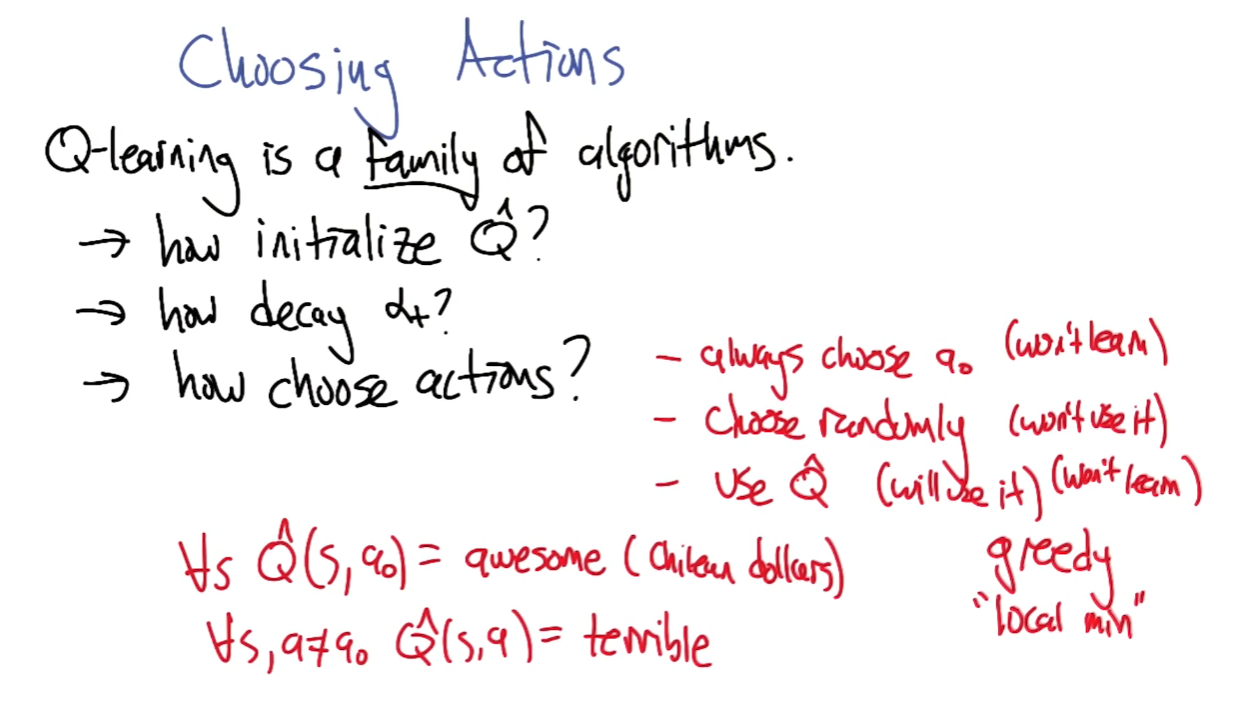 Choosing Actions
Q-learning is a family of algorithms.
→ how initialize Q̂?
→ how decay αt?
→ how choose actions?
- always choose a₀ (won't learn)
- choose randomly (won't use it)
- use Q̂ (will use it) (won't learn)
∀s Q̂(s, a₀) = awesome (Chilean dollars)
∀s, a≠a₀ Q̂(s,a) = terrible
greedy
"local min"